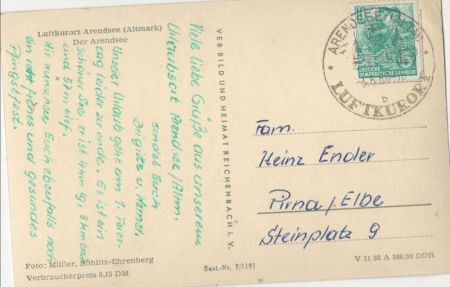 Luftkurort Arendsee (Altmark)
Der Arendsee
Viele liebe Grüße aus unserem
Urlaubsort Arendsee/Altm.
senden Euch
Brigitte u.
Unser Urlaub geht am 1. Feier-
tag leider zu ende. Es ist ein
schöner See, er ist 4 km lg, 3 km breit
und 57 m tief.
Wir wünschen Euch ebenfalls noch
ein schönes und gesundes
Pfingstfest.
Foto: Müller, Böhlitz-Ehrenberg
Verbraucherpreis 0,15 DM
VEB BILD UND HEIMAT REICHENBACH I. V.
Best.-Nr. 7/1191
ARENDSEE (ALTM)
b
LUFTKURORT
DEUTSCHE
DEMOKRATISCHE REPUBLIK
Fam.
Heinz Endler
Pirna/Elbe
Steinplatz 9
V 11 28 A 246/59 DDR